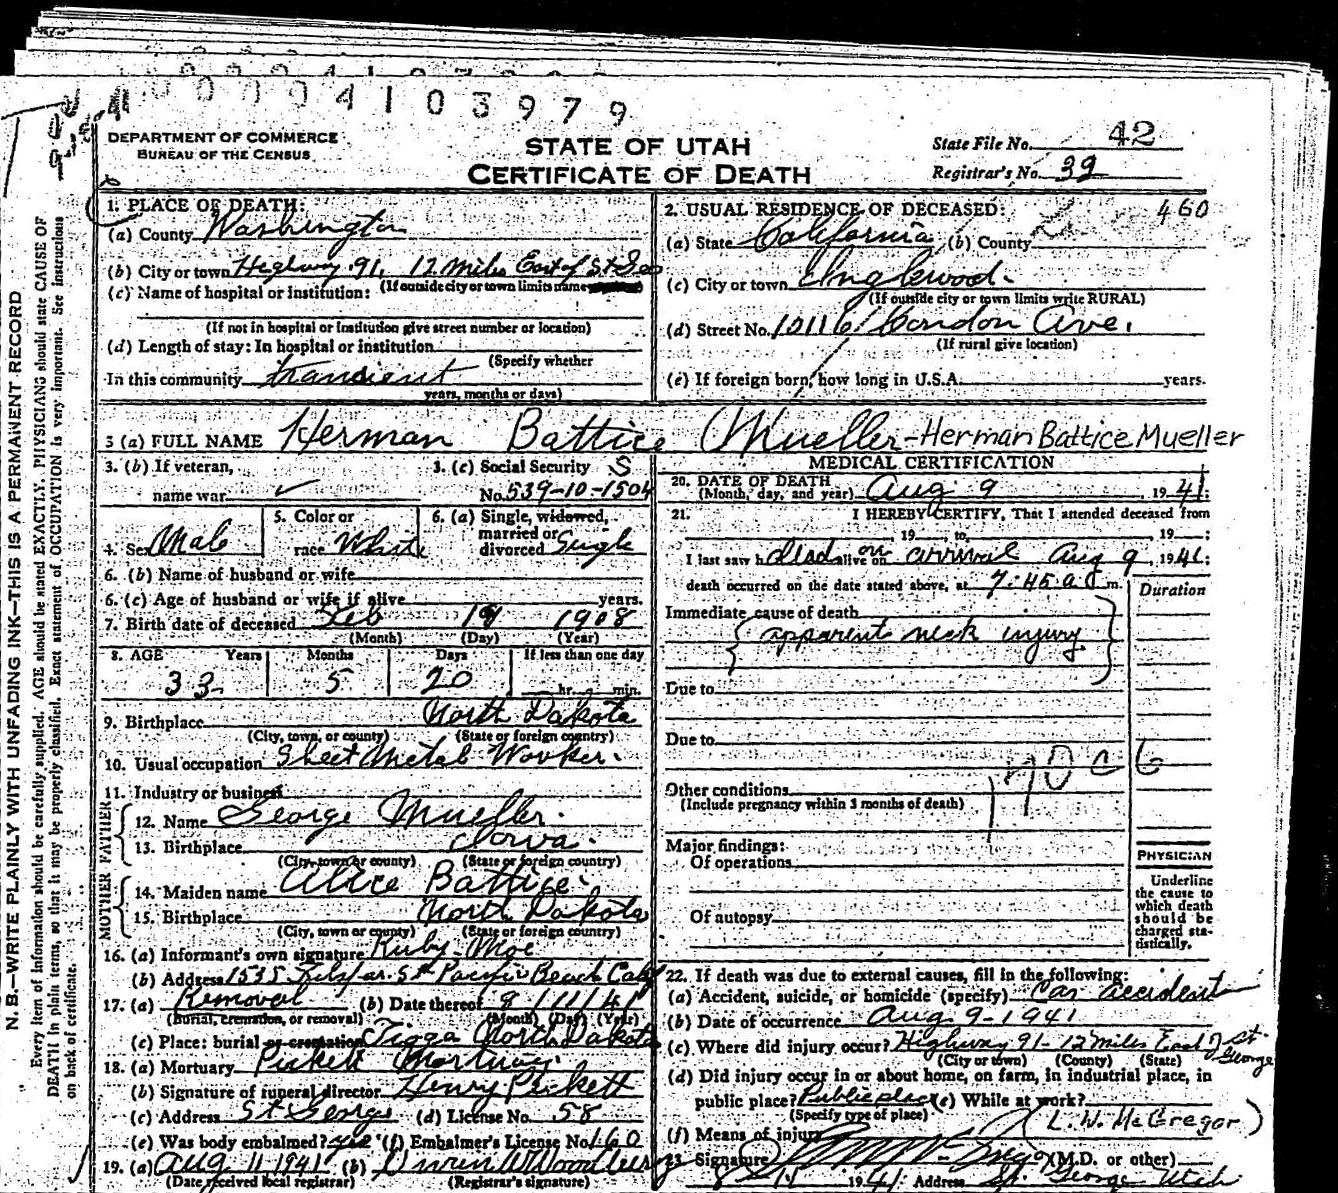 0 0 0 0 4 1 0 3 9 7 9
DEPARTMENT OF COMMERCE
BUREAU OF THE CENSUS
STATE OF UTAH
CERTIFICATE OF DEATH
State File No. 42
Registrar's No. 39
N. B.—WRITE PLAINLY WITH UNFADING INK—THIS IS A PERMANENT RECORD
Every item of information should be carefully supplied. AGE should be stated EXACTLY. PHYSICIAN should state CAUSE OF
DEATH in plain terms, so that it may be properly classified. Exact statement of OCCUPATION is very important. See instructions
on back of certificate.
1. PLACE OF DEATH:
(a) County Washington
(b) City or town Highway 91, 12 Miles East of St Geo
(If outside city or town limits name
(c) Name of hospital or institution:
(If not in hospital or institution give street number or location)
(d) Length of stay: In hospital or institution
(Specify whether
In this community transient
years, months or days)
2. USUAL RESIDENCE OF DECEASED: 460
(a) State California (b) County
(c) City or town Inglewood
(If outside city or town limits write RURAL)
(d) Street No. 10116 Condon Ave.
(If rural give location)
(e) If foreign born, how long in U.S.A. years.
3 (a) FULL NAME Herman Battice Mueller-Herman Battice Mueller
3. (b) If veteran, name war
3. (c) Social Security No. 539-10-1504
4. Sex Male
5. Color or race White
6. (a) Single, widowed, married or divorced Single
6. (b) Name of husband or wife
6. (c) Age of husband or wife if alive years.
7. Birth date of deceased Feb 19 1908
(Month) (Day) (Year)
8. AGE Years Months Days If less than one day
33 5 20 hr. min.
9. Birthplace North Dakota
(City, town, or county) (State or foreign country)
10. Usual occupation Sheet Metal Worker.
11. Industry or business
FATHER
12. Name George Mueller.
13. Birthplace Iowa.
(City, town or county) (State or foreign country)
MOTHER
14. Maiden name Alice Battice.
15. Birthplace North Dakota
(City, town or county) (State or foreign country)
16. (a) Informant's own signature Ruby Moe
(b) Address 1535 St Pacific Beach Calif
17. (a) Removal (b) Date thereof 8/11/41
(Burial, cremation, or removal) (Month) (Day) (Year)
(c) Place: burial or cremation Tioga North Dakota
18. (a) Mortuary Pickett Mortuary.
(b) Signature of funeral director Henry Pickett
(c) Address St George (d) License No. 58
(e) Was body embalmed? yes (f) Embalmer's License No. 160
19. (a) Aug 11, 1941 (b)
(Date received local registrar) (Registrar's signature)
MEDICAL CERTIFICATION
20. DATE OF DEATH
(Month, day, and year) Aug 9, 1941;
21. I HEREBY CERTIFY, That I attended deceased from
19 , to , 19 ;
I last saw h dead alive on arrival Aug 9, 1941;
death occurred on the date stated above, at 7:45 a m.
Duration
Immediate cause of death
apparent neck injury
Due to
Due to
170 c 6
Other conditions
(Include pregnancy within 3 months of death)
Major findings:
Of operations
Of autopsy
PHYSICIAN
Underline
the cause to
which death
should be
charged sta-
tistically.
22. If death was due to external causes, fill in the following:
(a) Accident, suicide, or homicide (specify) Car accident
(b) Date of occurrence Aug. 9-1941
(c) Where did injury occur? Highway 91-12 Miles East of St. George
(City or town) (County) (State)
(d) Did injury occur in or about home, on farm, in industrial place, in
public place? Public place (e) While at work?
(Specify type of place)
(f) Means of injury
(L. W. McGregor)
23. Signature (M.D. or other)
1941 Address St. George Utah